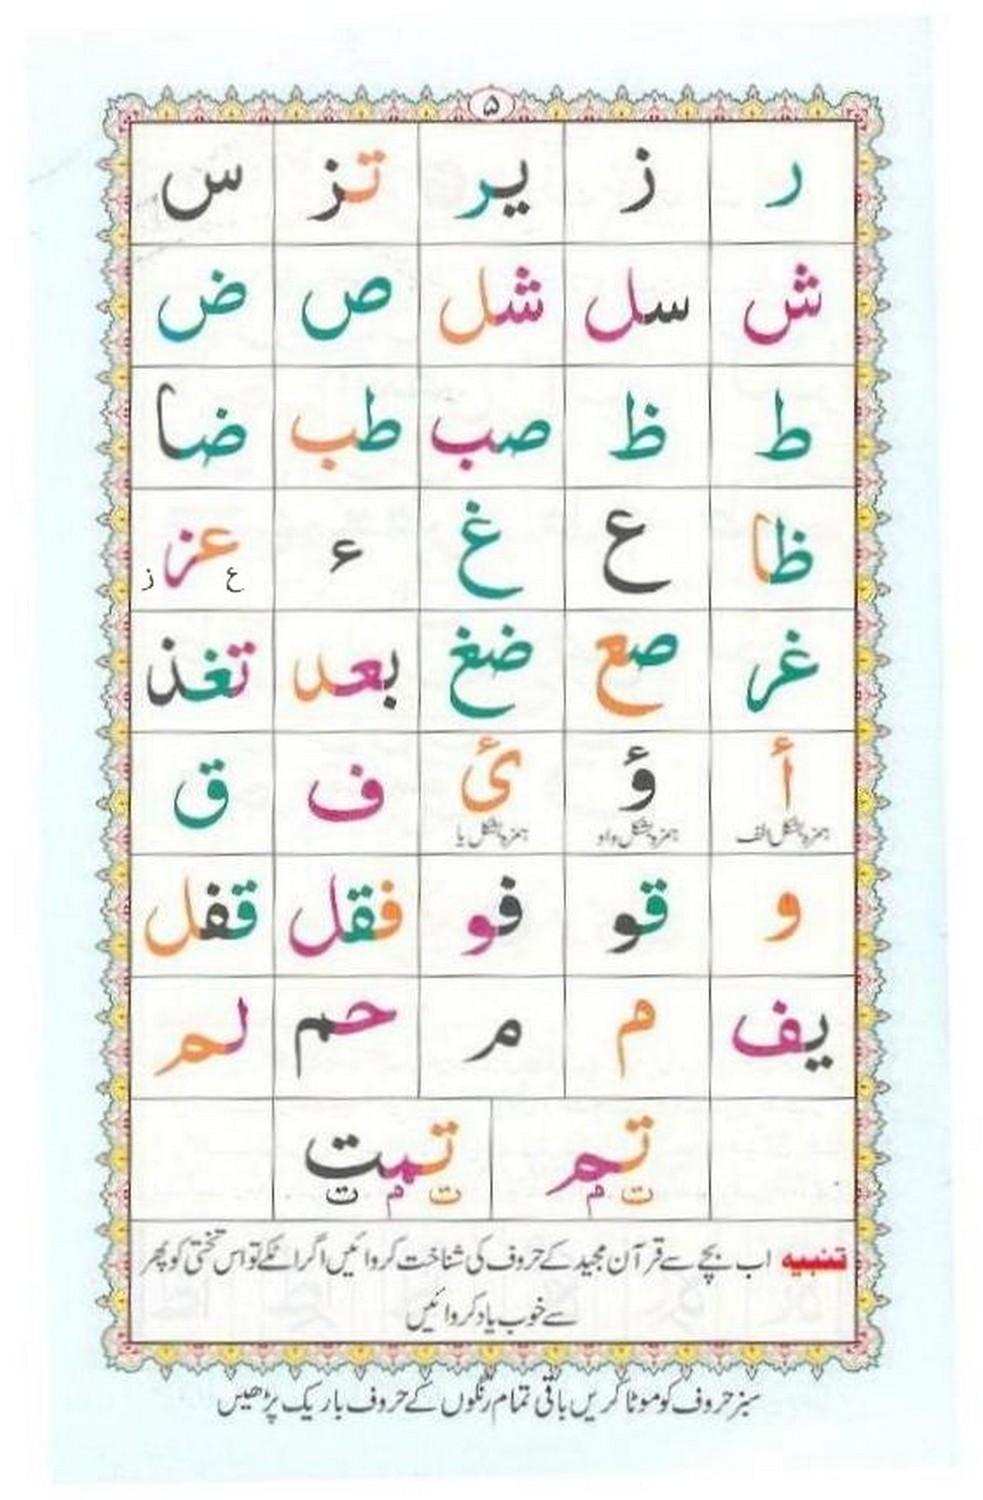 ۵
ر ز یر تز س
ش سل شل ص ض
ط ظ صب طب ضا
ظا ع غ ء عز
ع ز
غر صع ضغ بعد تغذ
أ ؤ ئ ف ق
ہمزہ بشکل الف ہمزہ بشکل واو ہمزہ بشکل یا
و قو فو فقل قفل
یف م م حم لم
تم تمت
ت م ت م ت
تنبیہ اب بچے سے قرآن مجید کے حروف کی شناخت کروائیں اگر اٹکے تو اس تختی کو پھر
سے خوب یاد کروائیں
سبز حروف کو موٹا کریں باقی تمام رنگوں کے حروف باریک پڑھیں